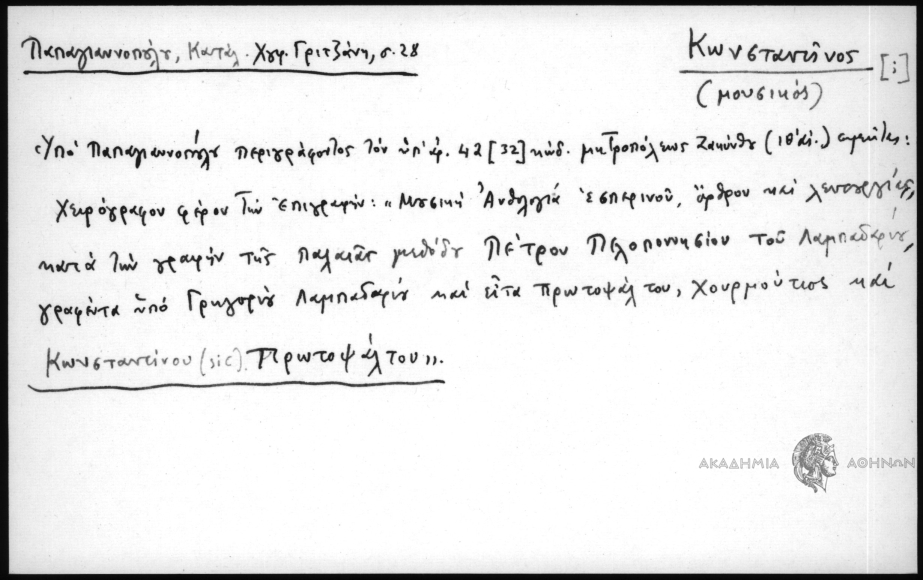 Παπαγιαννοπούλου, Κατάλ. Χγφ. Γριτζάνη, σ. 28
Κωνσταντῖνος [;]
(μουσικός)
«Ὑπὸ Παπαγιαννοπούλου περιγράφοντος τὸν ὑπ' ἀρ. 42 [32] κώδ. μητροπόλεως Ζακύνθου (ΙΘ' αἰ.) σημειοῦται:
Χειρόγραφον φέρον τὴν ἐπιγραφήν: "Μουσικὴ Ἀνθολογία ἑσπερινοῦ, ὄρθρου καὶ λειτουργίας,
κατὰ τὴν γραφὴν τῆς παλαιᾶς μεθόδου Πέτρου Πελοποννησίου τοῦ Λαμπαδαρίου,
γραφέντα ὑπὸ Γρηγορίου Λαμπαδαρίου καὶ εἶτα πρωτοψάλτου, Χουρμούζιος καὶ
Κωνσταντίνου (sic) Πρωτοψάλτου».
ΑΚΑΔΗΜΙΑ ΑΘΗΝΩΝ